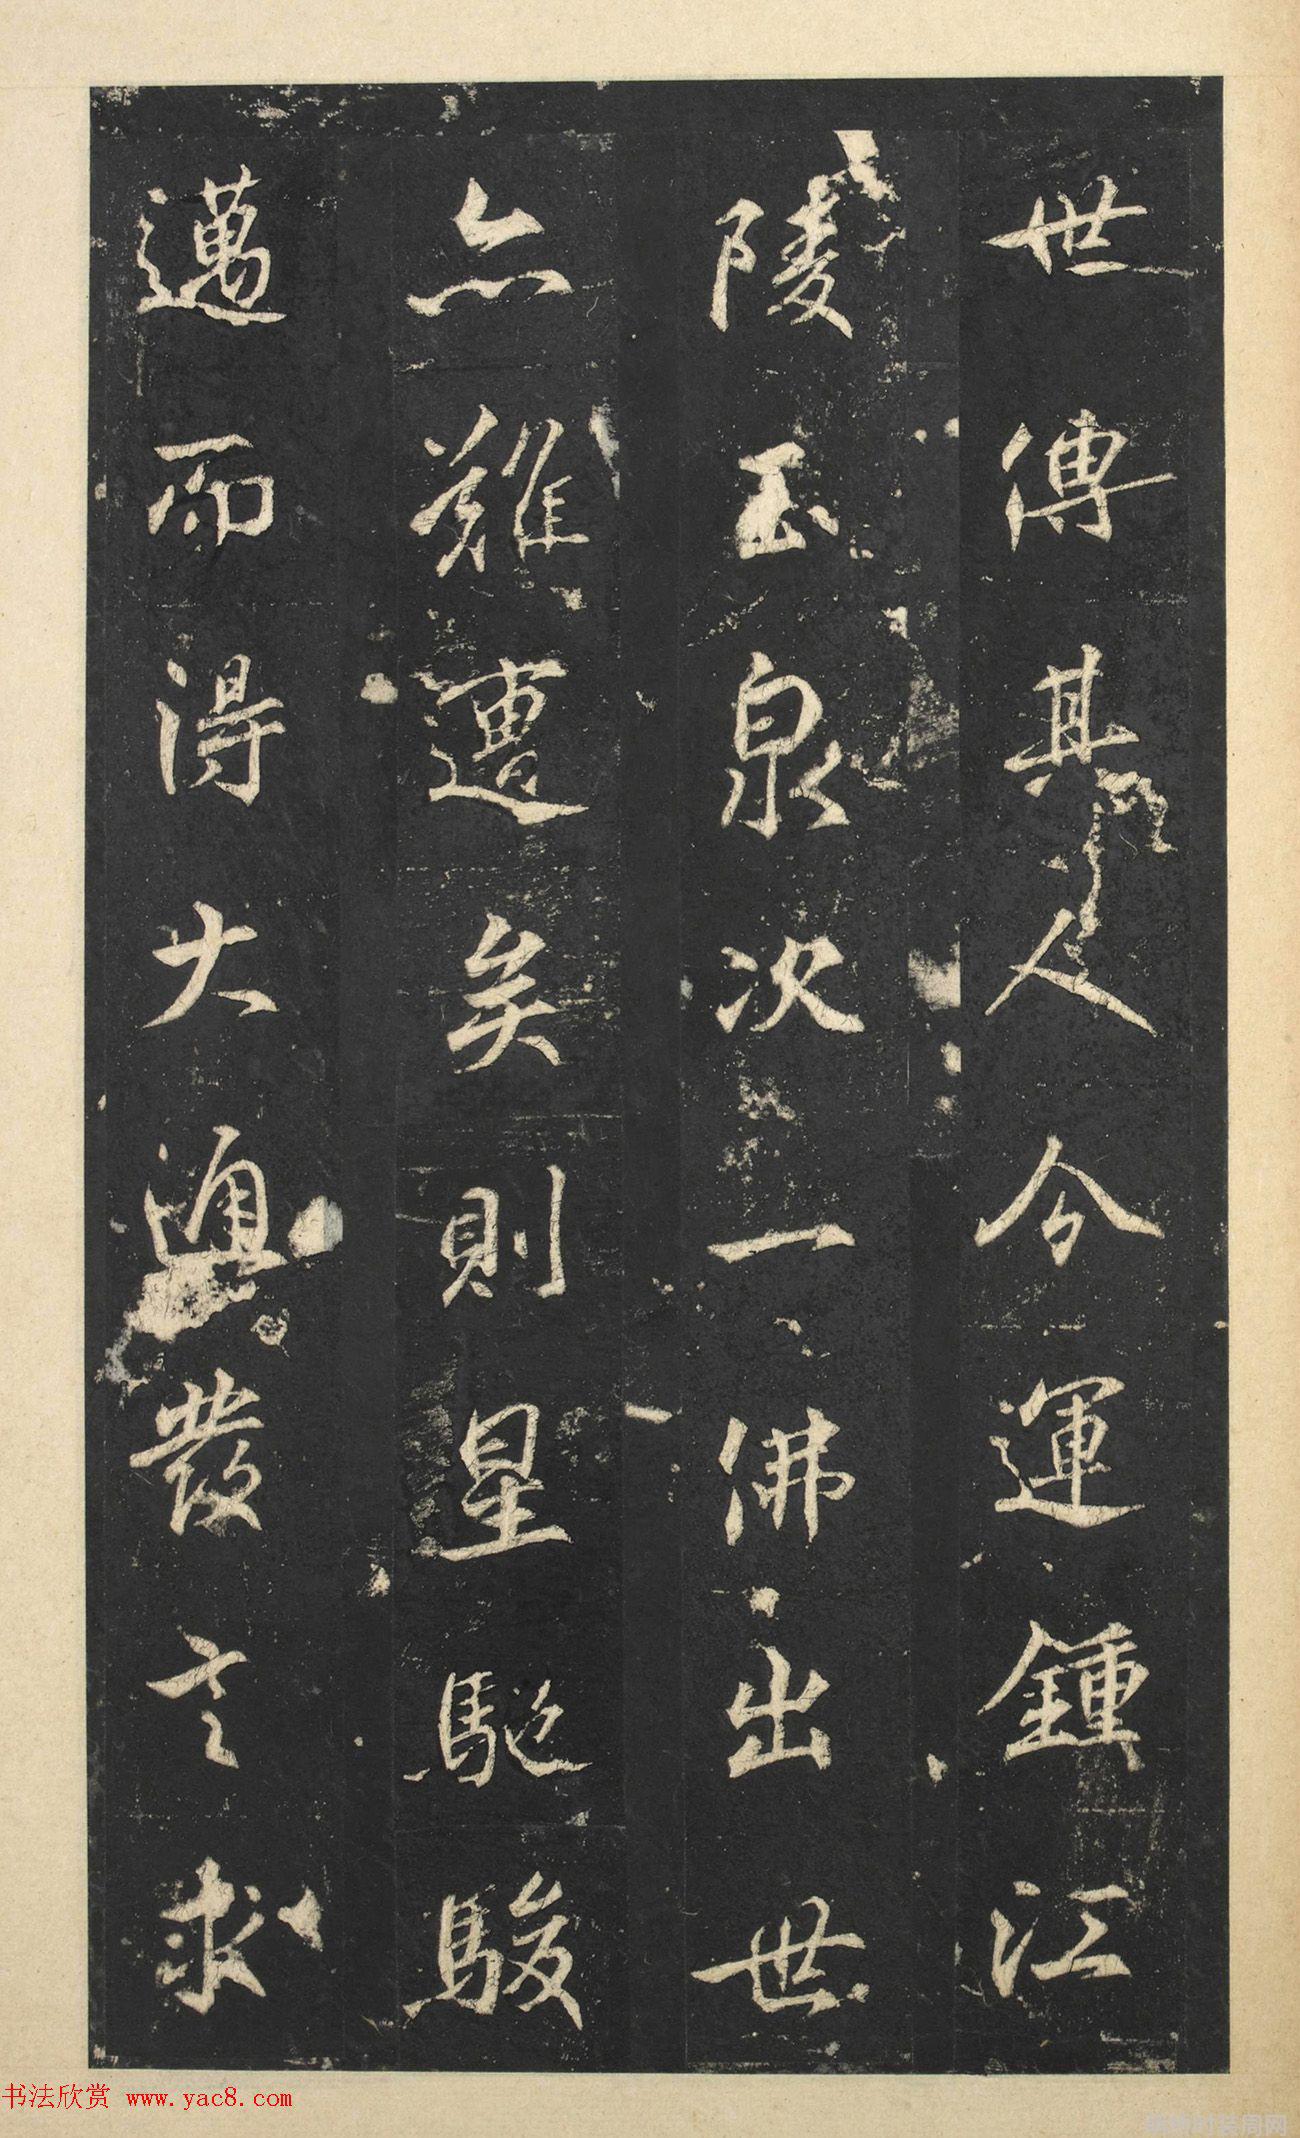 世傳其人今運鍾江
陵玉泉次一佛出世
亦難遭矣則星馳駿
邁而得大通發言求
书法欣赏 www.yac8.com